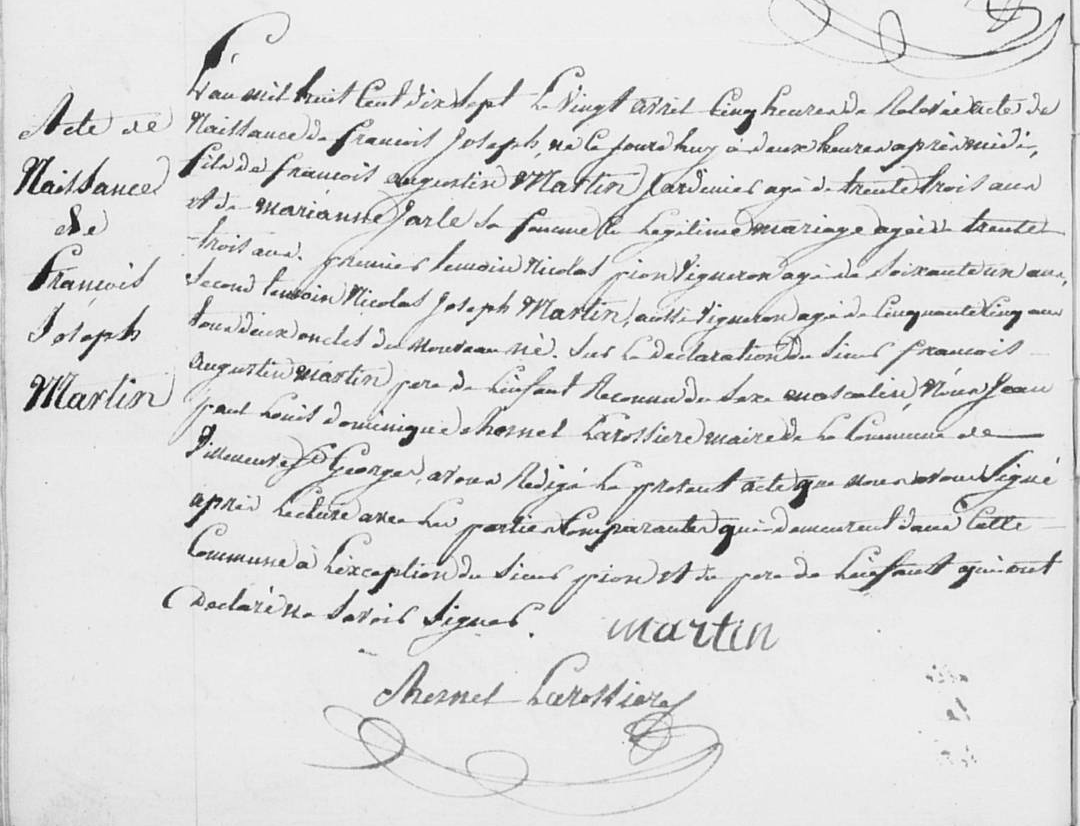 Acte de
Naissance
de
François
Joseph
Martin
L'an mil huit Cent dix Sept Le Vingt avril Cinq heures de Relevée acte de
Naissance de francois Joseph, né le jourd'huy à deux heures après midi,
fils de francois augustin Martin Jardinier agé de trente trois ans
et de marianne Jarle Sa femme en Legitime mariage agée de trente
trois ans. premier temoin Nicolas pion Vigneron agé de Soixante un ans,
Second temoin Nicolas Joseph Martin, aussi Vigneron agé de Cinquante Cinq ans
tous deux oncles du nouveau né. Sur la declaration du Sieur francois
augustin martin pere de L'enfant Reconnu du Sexe masculin, Nous Jean
paul Louis dominique Chesnel Larossiere maire de La Commune de
Villeneuve St Georges, avons Rédigé Le present acte que nous avons Signé
après Lecture avec Les parties Comparantes qui demeurent dans Cette
Commune à L'exception du Sieur pion et du pere de L'enfant qui ont
Declaré ne Savoir Signer.
martin
Chesnel Larossiere